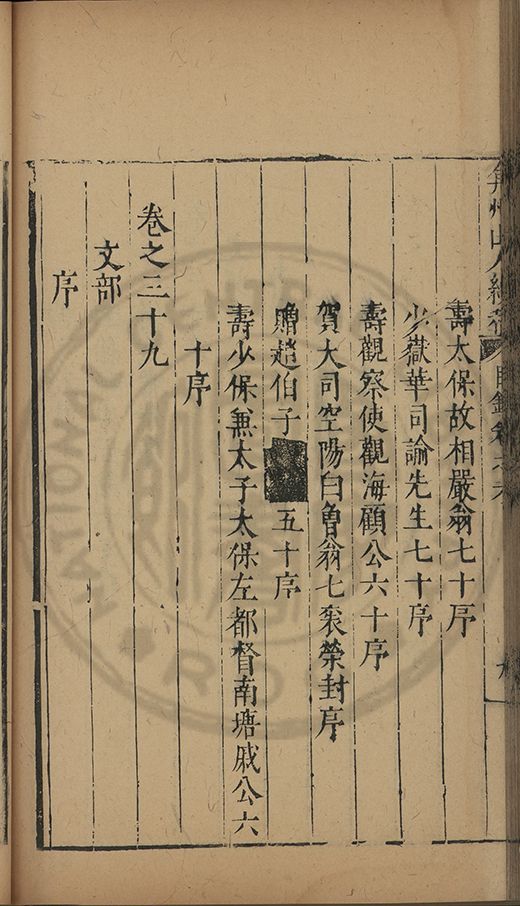 弇州山人續稿 目録卷之六
壽太保故相嚴翁七十序
少嶽華司諭先生七十序
壽觀察使觀海顧公六十序
賀大司空陽白曾翁七袠榮封序
贈趙伯子五十序
壽少保兼太子太保左都督南塘戚公六
十序
卷之三十九
文部
序